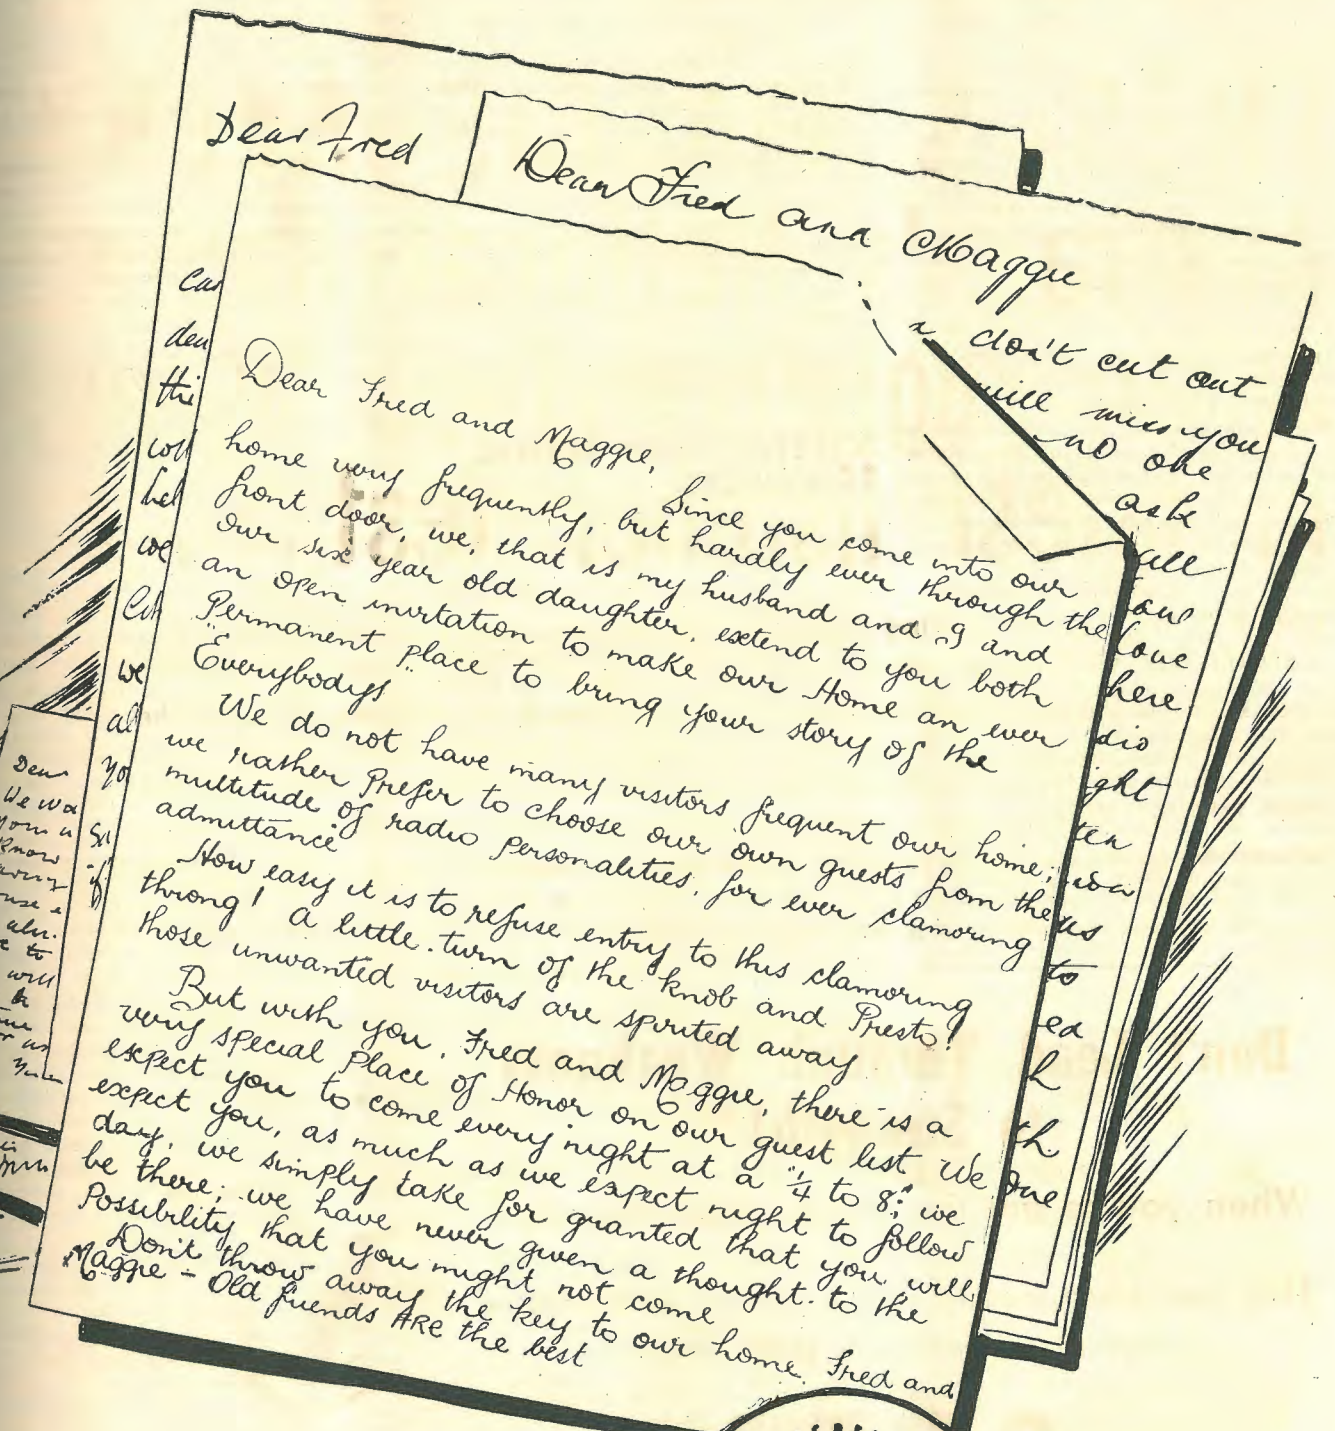 Dear Fred
Dear Fred and Maggie
don't cut out
will miss you
no one
ask
all
love
here
dio
ight
ten
us
to
ed
h
th
one
Car
den
thi
we
we
al
yo
if
Dear Fred and Maggie,
Since you come into our
home very frequently, but hardly ever through the
front door, we, that is my husband and I and
our six year old daughter, extend to you both
an open invitation to make our Home an ever
Permanent place to bring your story of the
"Everybodys"
We do not have many visitors frequent our home;
we rather Prefer to choose our own guests from the
multitude of radio Personalities, for ever clamoring
admittance
How easy it is to refuse entry to this clamoring
throng! A little turn of the knob and Presto!
those unwanted visitors are spirited away
But with you, Fred and Maggie, there is a
very special Place of Honor on our guest list We
expect you to come every night at a "1/4 to 8"; we
expect you, as much as we expect night to follow
day, we simply take for granted that you will
be there; we have never given a thought to the
Possibility that you might not come
Don't throw away the key to our home, Fred and
Maggie - Old friends ARE the best
Dear
We wa
know
to
will